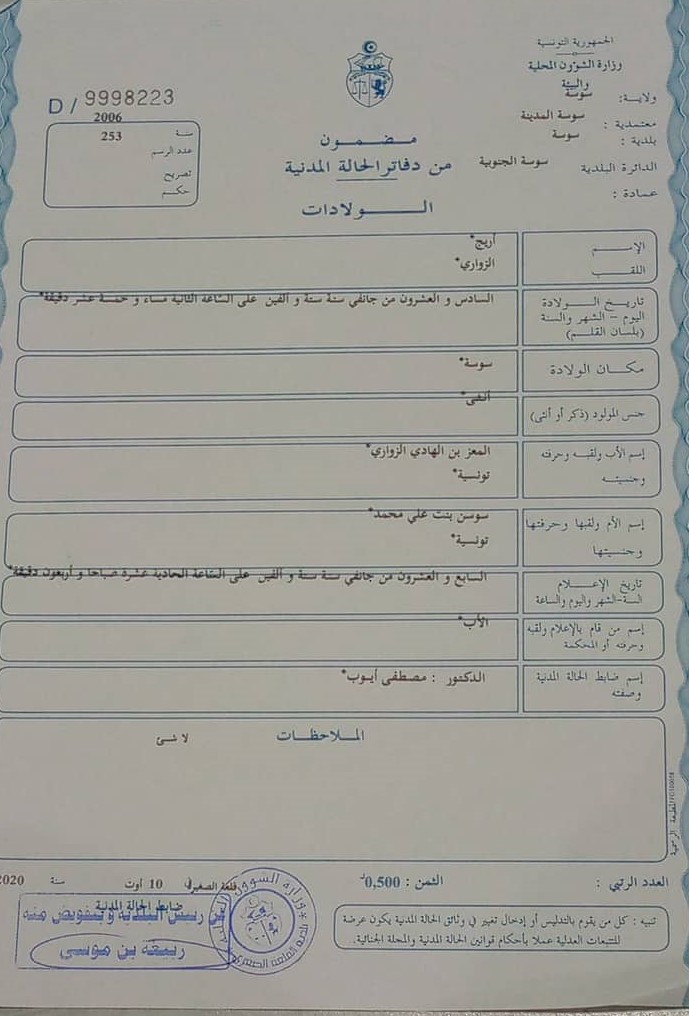 الجمهورية التونسية
وزارة الشؤون المحلية
والبيئة
ولاية: سوسة
معتمدية : سوسة المدينة
بلدية : سوسة
الدائرة البلدية سوسة الجنوبية
عمادة :
D / 9998223
سنة 2006
عدد الرسم 253
تصريح
حكم
مضمون
من دفاتر الحالة المدنية
الولادات
الإسم أريج*
اللقب الزواري*
تاريخ الولادة
اليوم - الشهر والسنة
(بلسان القلم)
السادس و العشرون من جانفي سنة ستة و ألفين على الساعة الثانية مساء و خمسة عشر دقيقة*
مكان الولادة سوسة*
جنس المولود (ذكر أو أنثى) أنثى*
إسم الأب ولقبه وحرفته المعز بن الهادي الزواري*
وجنسيته تونسية*
إسم الأم ولقبها وحرفتها سوسن بنت علي محمد*
وجنسيتها تونسية*
تاريخ الإعلام
السنة-الشهر واليوم والساعة
السابع و العشرون من جانفي سنة ستة و ألفين على الساعة الحادية عشرة صباحا و أربعون دقيقة*
إسم من قام بالإعلام ولقبه
وحرفته أو المحكمة
الأب*
إسم ضابط الحالة المدنية
وصفته
الدكتور : مصطفى أيوب*
الملاحظات
لا شئ
المطبعة الرسمية
العدد الرتبي :
الثمن : 0,500د
في 10 أوت سنة 2020
ضابط الحالة المدنية
عن رئيس البلدية وبتفويض منه
ربيعة بن موسى
تنبيه : كل من يقوم بالتدليس أو إدخال تغيير في وثائق الحالة المدنية يكون عرضة
للتتبعات العدلية عملا بأحكام قوانين الحالة المدنية والمجلة الجنائية.